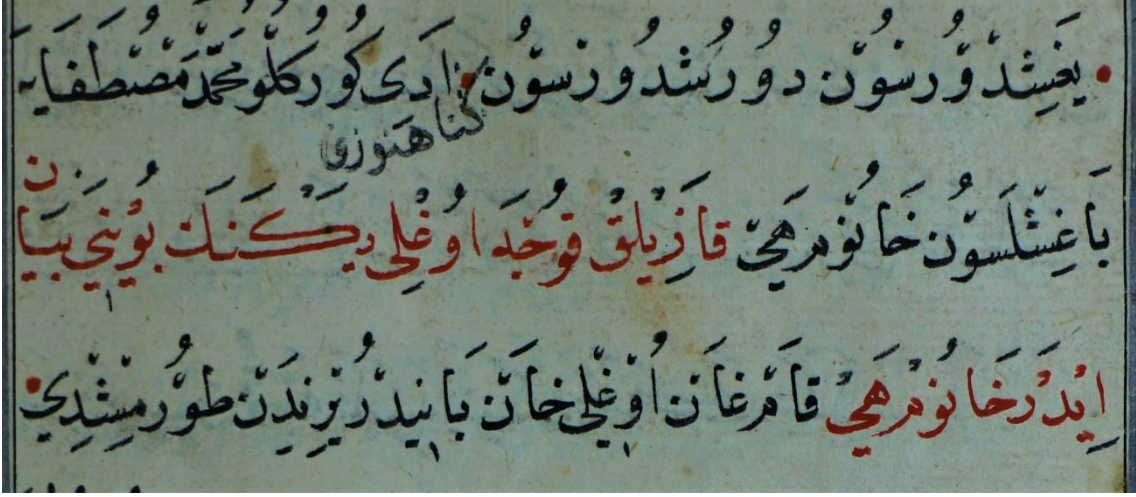 يغشدورسون دورشدورسون ادى كوركلو محمد مصطفايه
كناهنوزى
باغشلسون خانوم هى قازيلق قوجه اوغلى يكنك بوينى بيان
ايدر خانوم هى قامغان اوغلى خان باييندر يرندن طورمشدى